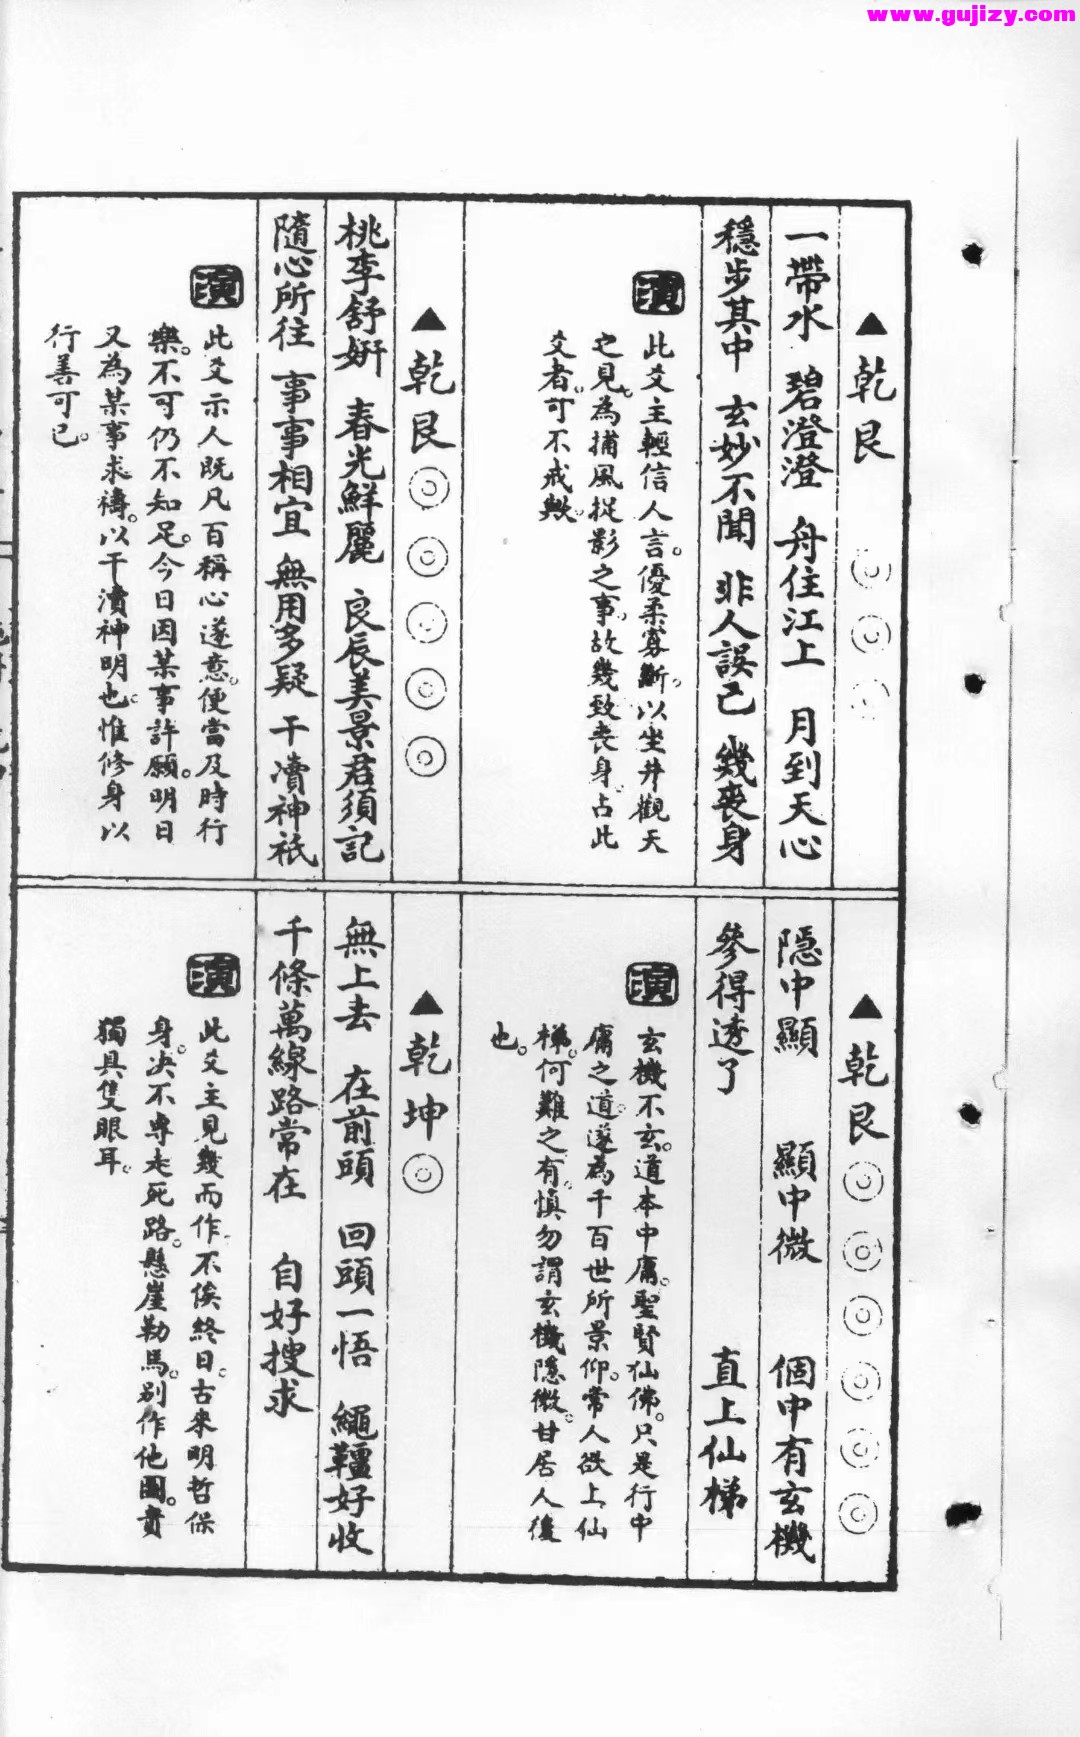 www.gujizy.com
▲乾艮◎◎◎
一帶水 碧澄澄 舟住江上 月到天心
穩步其中 玄妙不聞 非人誤己 幾喪身
演
此爻主輕信人言。優柔寡斷。以坐井觀天
之見。為捕風捉影之事。故幾致喪身。占此
爻者。可不戒歟。
▲乾艮◎◎◎◎◎
桃李舒妍 春光鮮麗 良辰美景君須記
隨心所往 事事相宜 無用多疑 干瀆神祇
演
此爻示人既凡百稱心遂意。便當及時行
樂。不可仍不知足。今日因某事許願。明日
又為某事求禱。以干瀆神明也。惟修身以
行善可已。
▲乾艮◎◎◎◎◎◎
隱中顯 顯中微 個中有玄機
參得透了 直上仙梯
演
玄機不玄。道本中庸。聖賢仙佛。只是行中
庸之道。遂為千百世所景仰。常人欲上仙
梯。何難之有。慎勿謂玄機隱微。甘居人後
也。
▲乾坤◎
無上去 在前頭 回頭一悟 繩韁好收
千條萬線路常在 自好搜求
演
此爻主見幾而作。不俟終日。古來明哲保
身。決不專走死路。懸崖勒馬。別作他圖。貴
獨具隻眼耳。